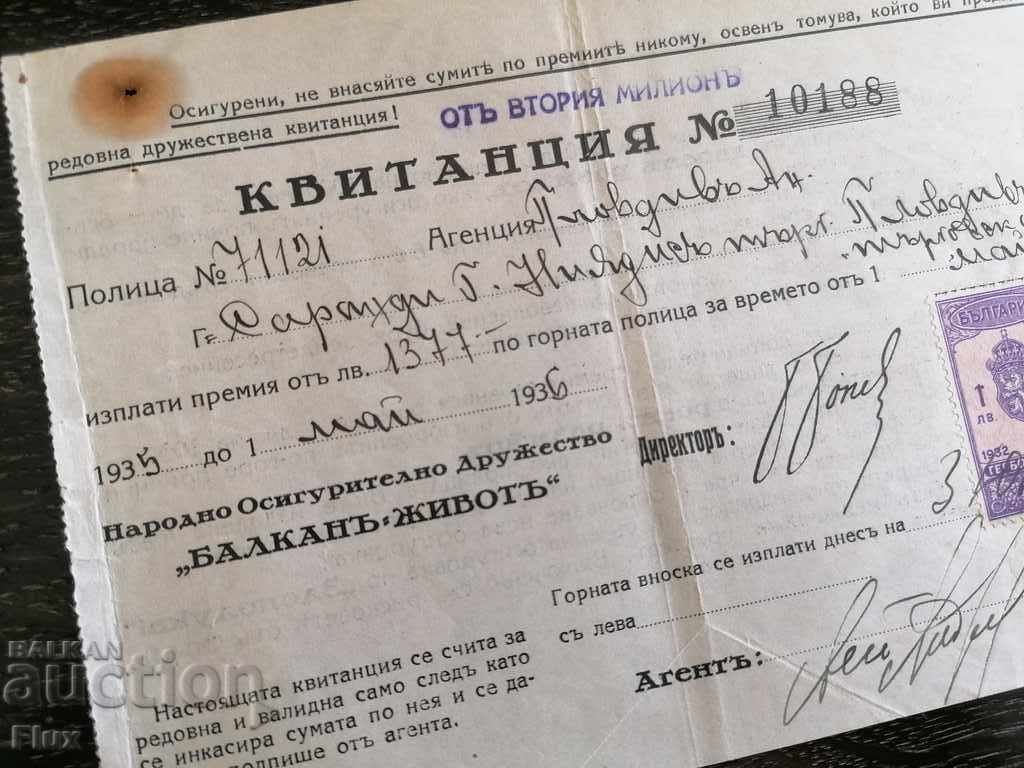 Осигурени, не внасяйте сумитѣ по премиитѣ никому, освенъ томува, който ви
редовна дружествена квитанция!
ОТЪ ВТОРИЯ МИЛИОНЪ
КВИТАНЦИЯ № 10188
Полица № 71121 Агенция Пловдивъ Ан.
Гг. Г. търг. Пловдивъ
изплати премия отъ лв. 1377- по горната полица за времето отъ 1 май
1935 до 1 май 1936
Народно Осигурително Дружество
„БАЛКАНЪ-ЖИВОТЪ“
Директоръ:
БЪЛГАРИ
1
лв.
1932
ГЕРБО
Горната вноска се изплати днесъ на 3
съ лева
Агентъ:
Настоящата квитанция се счита за
редовна и валидна само следъ като
се инкасира сумата по нея и се да-
подпише отъ агента.
BALKAN
auction
Flux